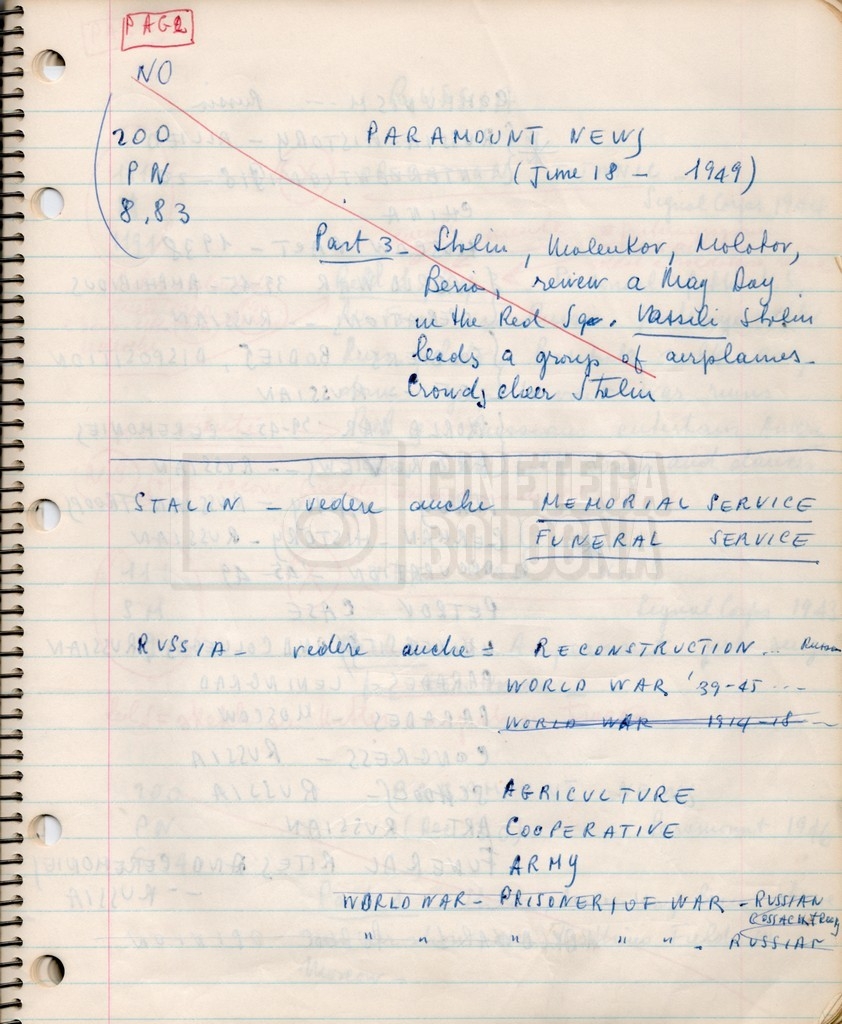 PAG 2
NO
200 PARAMOUNT NEWS
PN (June 18 - 1949)
8,83
Part 3 - Stalin, Malenkov, Molotov,
Beria, review a May Day
in the Red Sq. Vassili Stalin
leads a group of airplanes.
Crowds cheer Stalin
CINETECA
BOLOGNA
STALIN - vedere anche MEMORIAL SERVICE
FUNERAL SERVICE
RUSSIA - vedere anche = RECONSTRUCTION... Russia
WORLD WAR '39-45 ...
WORLD WAR 1914-18 --
AGRICULTURE
COOPERATIVE
ARMY
WORLD WAR - PRISONERS OF WAR - RUSSIAN
" " " " " - RUSSIAN